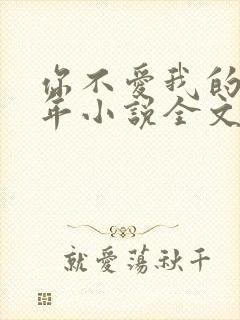 你不爱我的
年小说全文
就爱荡秋千